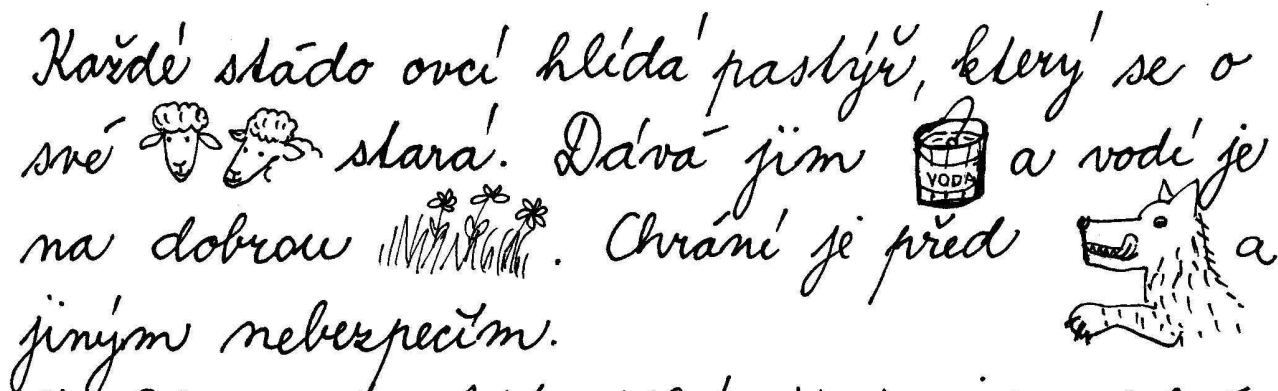 Každé stádo ovcí hlídá pastýř, který se o
své stará. Dává jim VODA a vodí je
na dobrou . Chrání je před a
jiným nebezpečím.